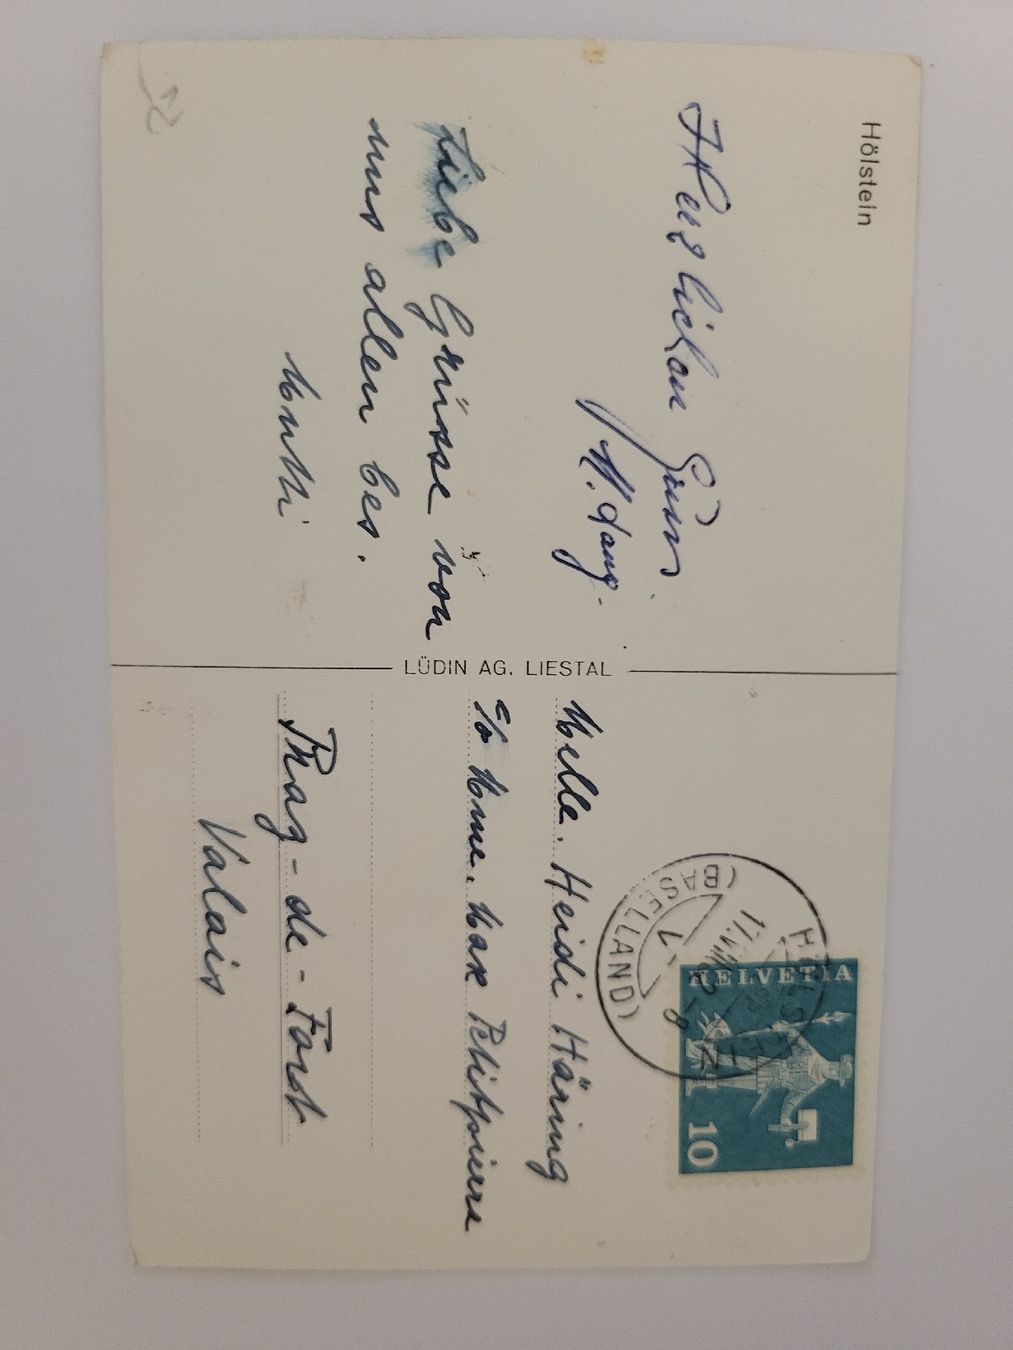 Hölstein
Herzlichen Gruss
H. Haug.
Liebe Grüsse von
uns allen bes.
Mutti
LÜDIN AG. LIESTAL
Melle. Heidi Häring
c/o Mme. Max Petitpierre
Praz-de-Fort
Valais
HELVETIA
10
HÖLSTEIN
(BASELLAND)
17.VIII